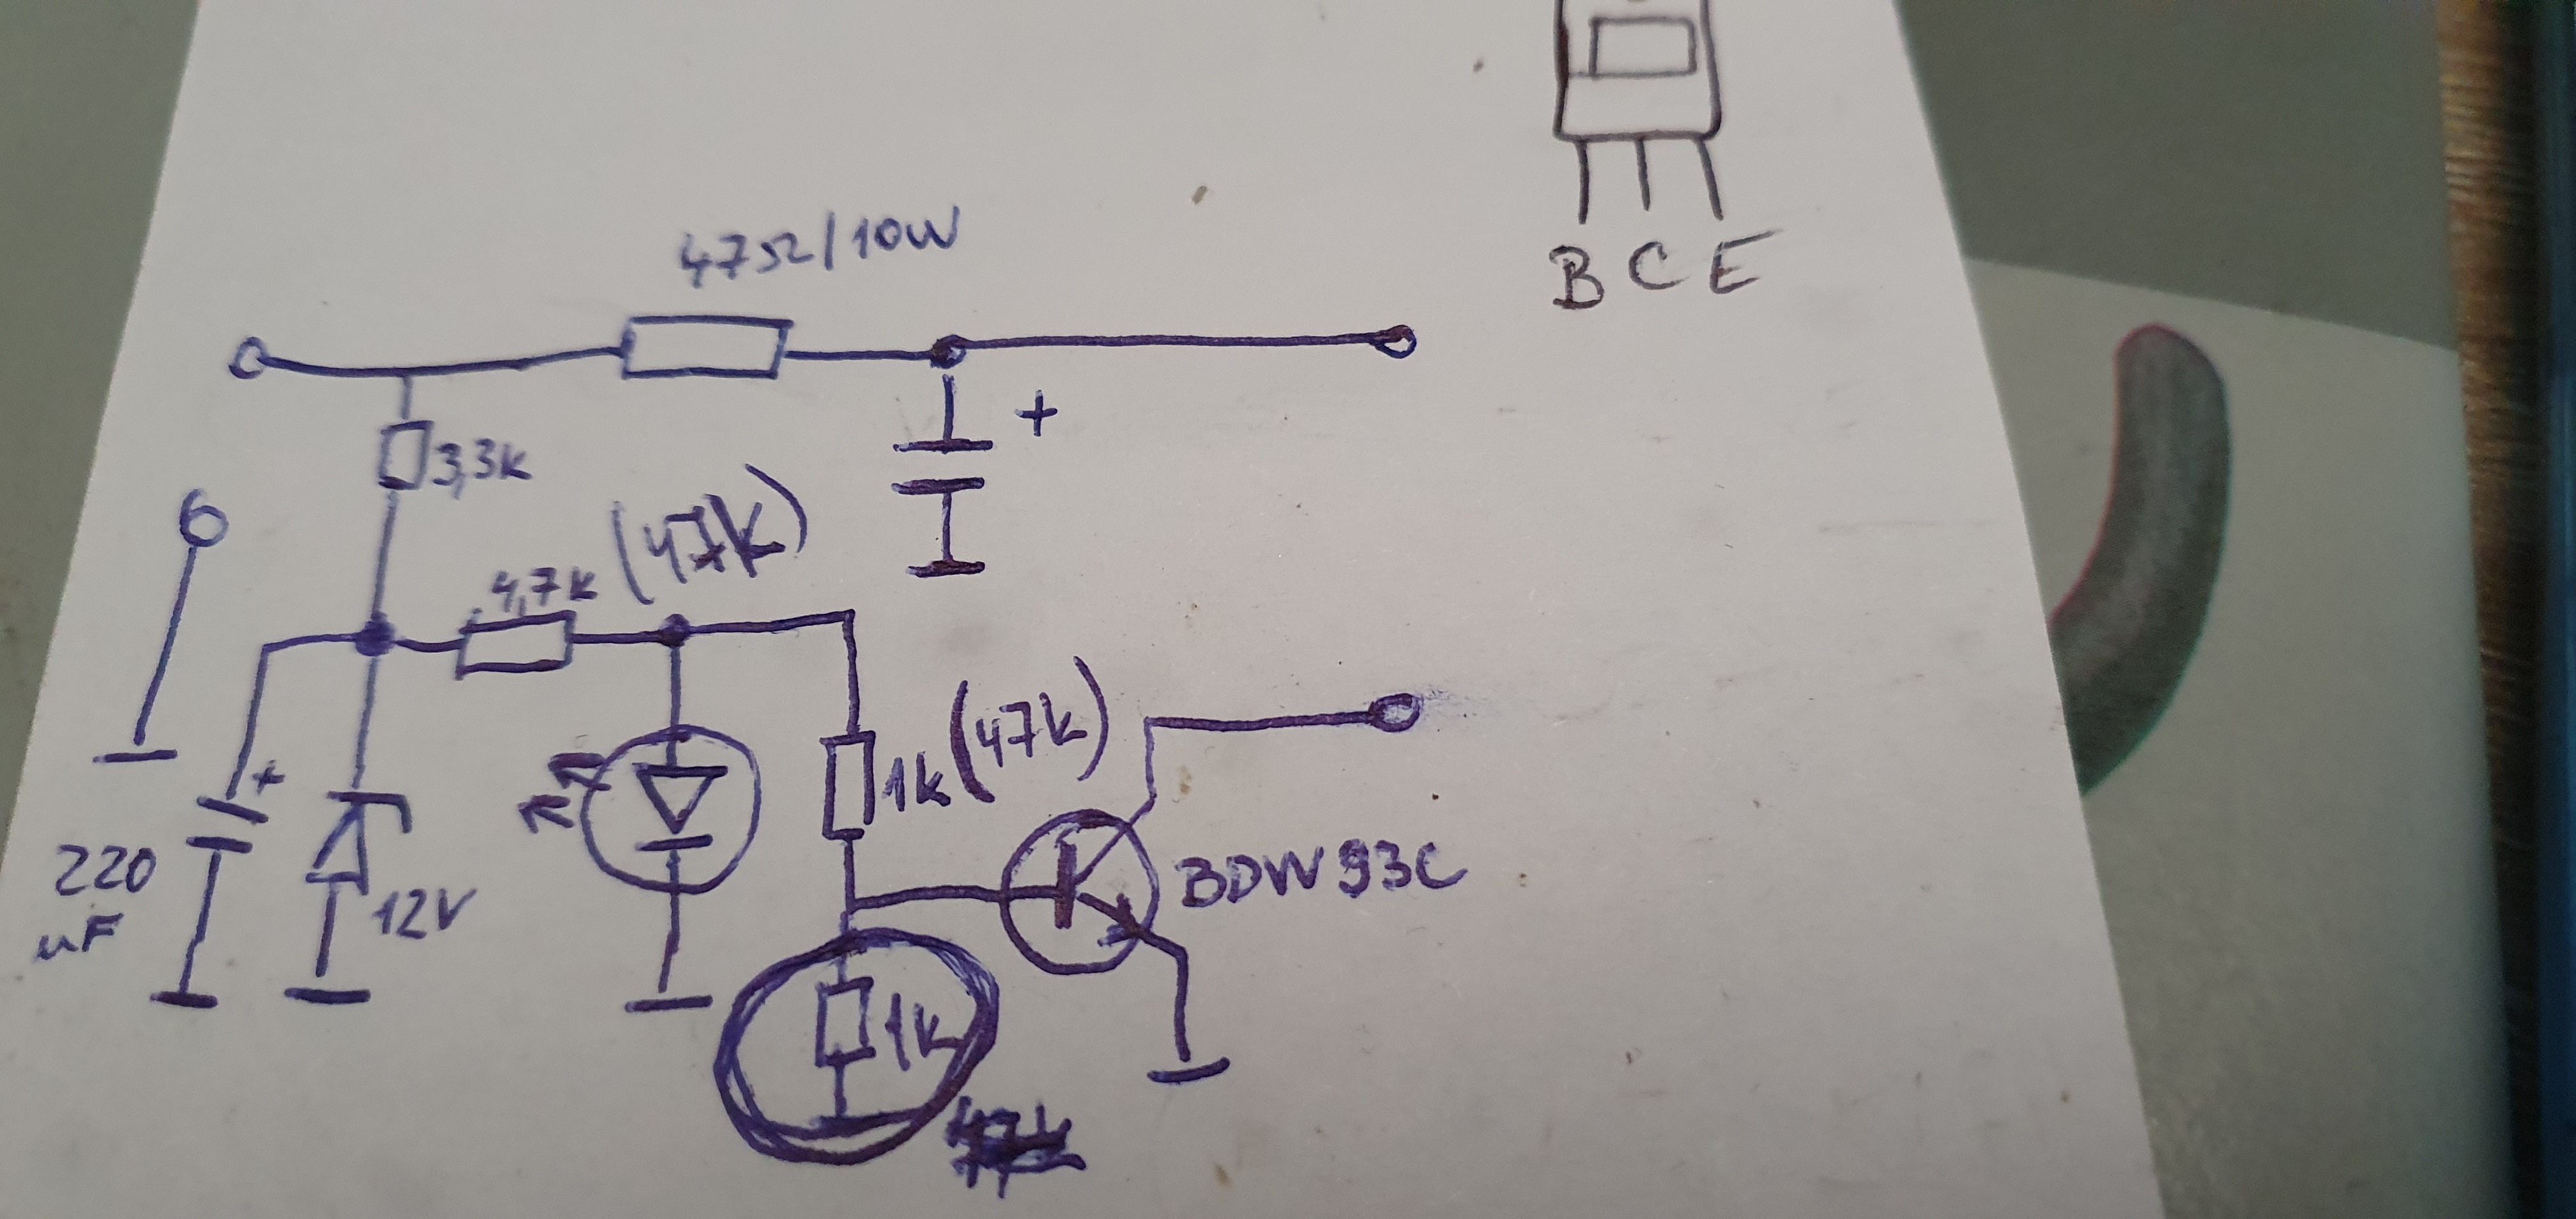 47Ω/10W
B C E
+
3,3k
4,7k (47k)
1k (47k)
+
220
uF
12V
BDW93C
1k
47k